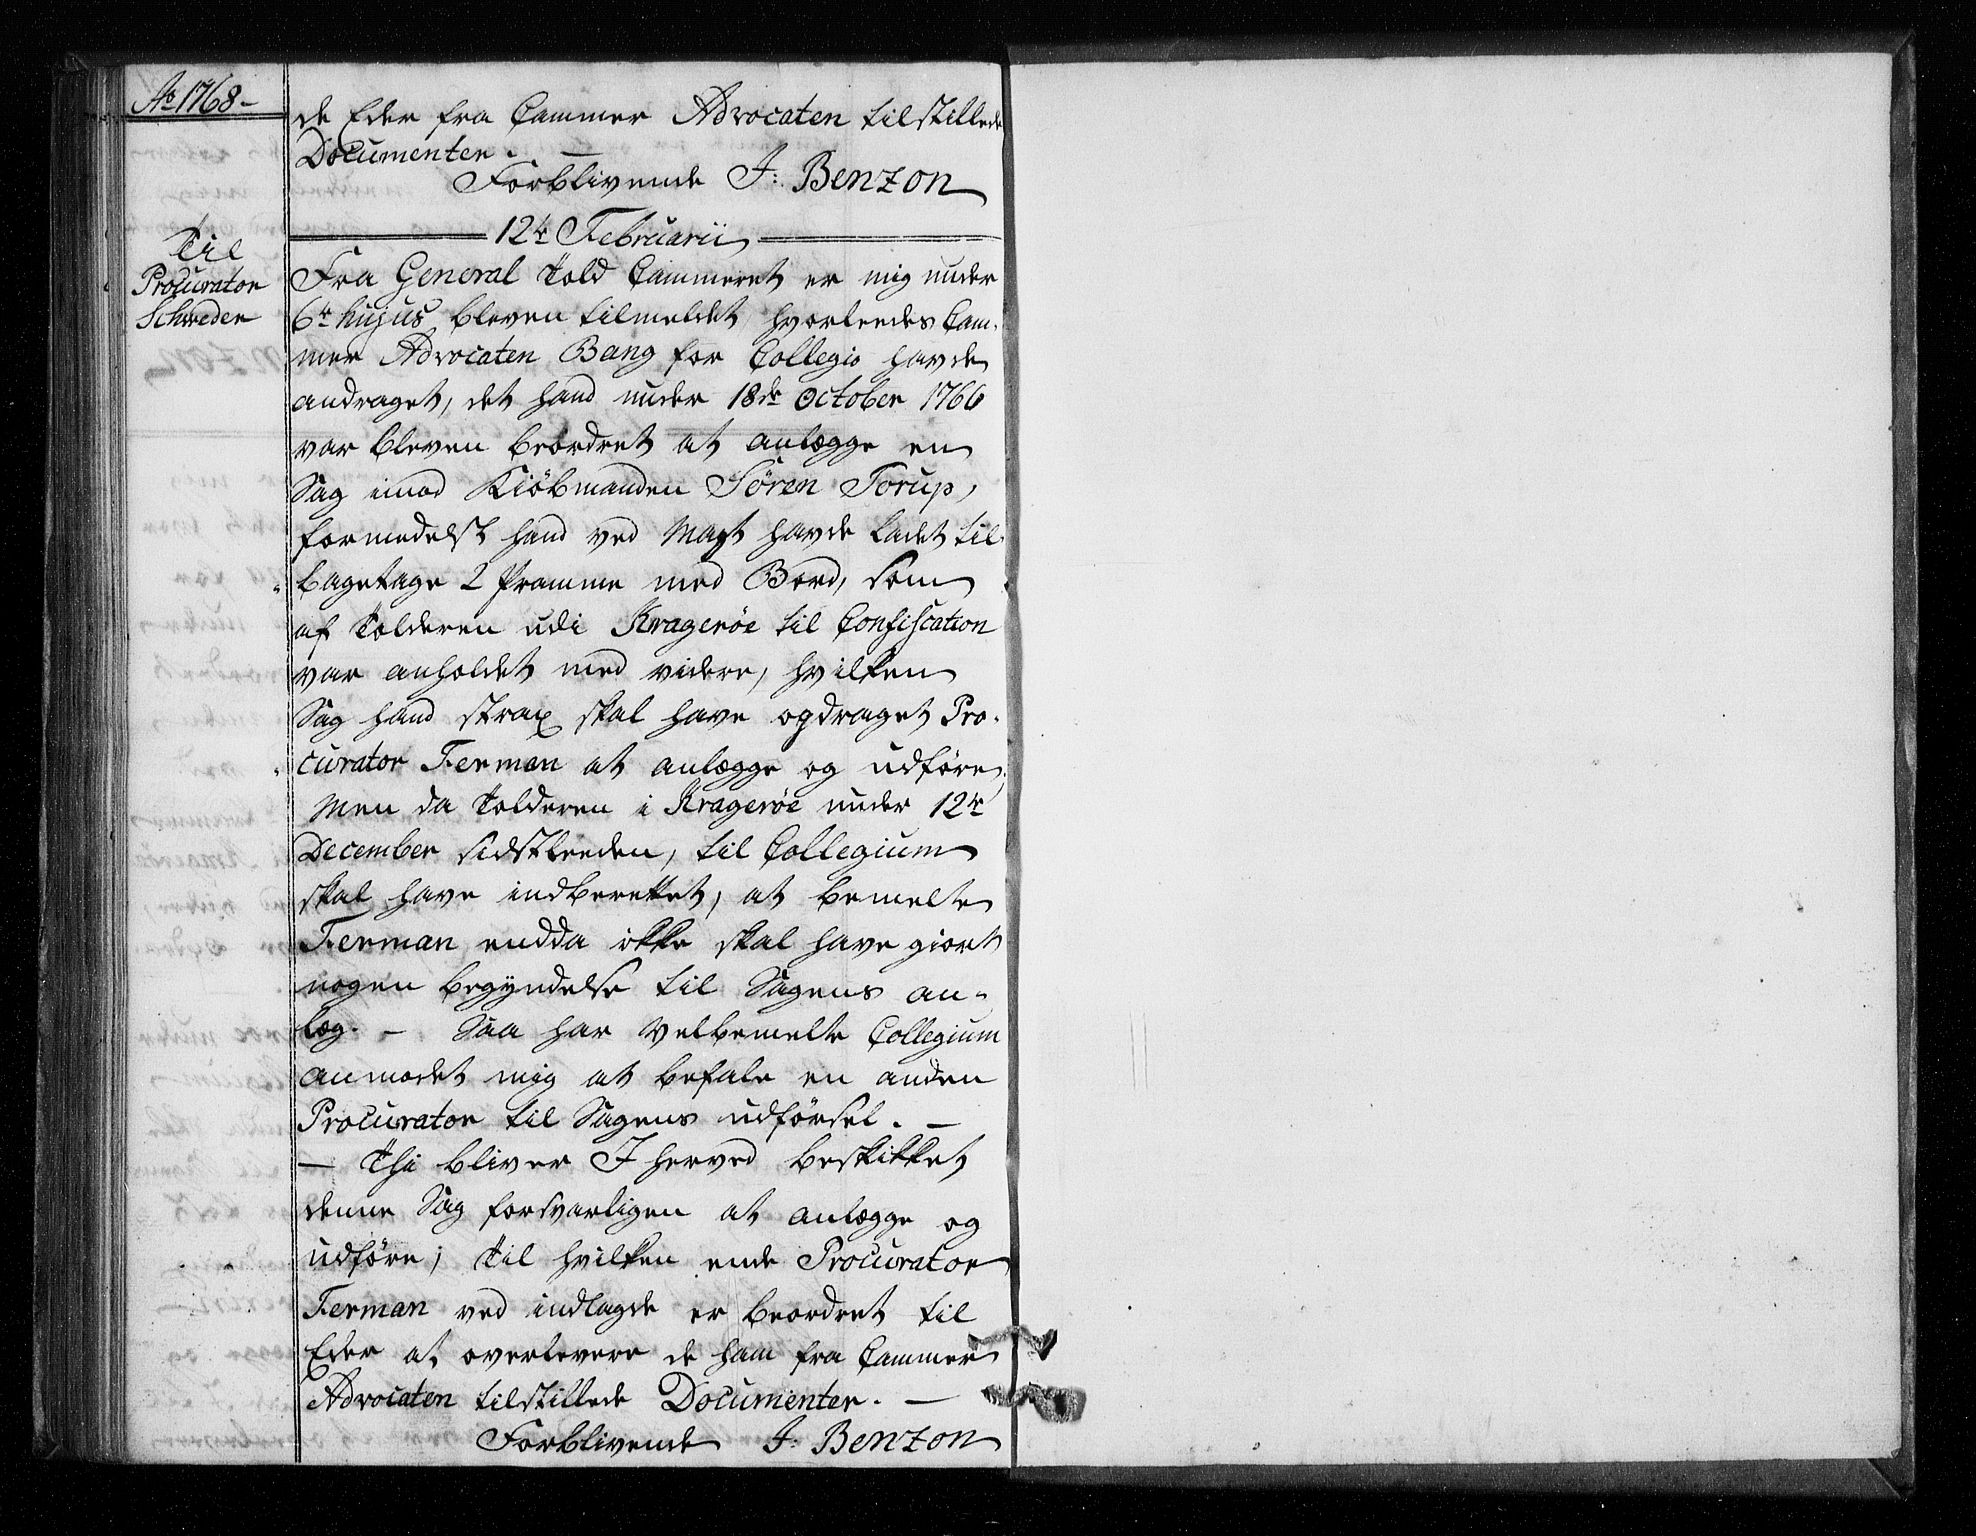 Ao 1768 -
de Eder fra Cammer Advocaten tilstillede
Documenter. —
Forblivende J: Benzon
12te Februarii
Til
Procurator
Schweder
Fra General Told Cammeret er mig under
6te hujus bleven tilmeldet, hvorleedes Cam-
mer Advocaten Bang for Collegio havde
andraget, det hand under 18de October 1766
var bleven beordret at anlægge en
Sag imod Kiöbmanden Sören Torup,
formedelst hand ved Magt havde ladet til-
bagetage 2 Pramme med Bord, som
af Tolderen udi Kragerøe til Confiscation
var anholdet med videre, hvilken
Sag hand strax skal have opdraget Pro-
curator Ferman at anlægge og udføre,
Men da Tolderen i Kragerøe under 12te
December sidstleeden, til Collegium
skal have indberettet, at bemelte
Ferman endda ikke skal have giort
nogen begyndelse til Sagens an-
læg. — Saa har velbemelte Collegium
anmodet mig at befale en anden
Procurator til Sagens udførsel. —
— Thi bliver I herved beskikket
denne Sag forsvarligen at anlægge og
udføre; Til hvilken ende Procurator
Ferman ved indlagde er beordret til
Eder at overlevere de ham fra Cammer
Advocaten tilstillede Documenter. —
Forblivende J: Benzon